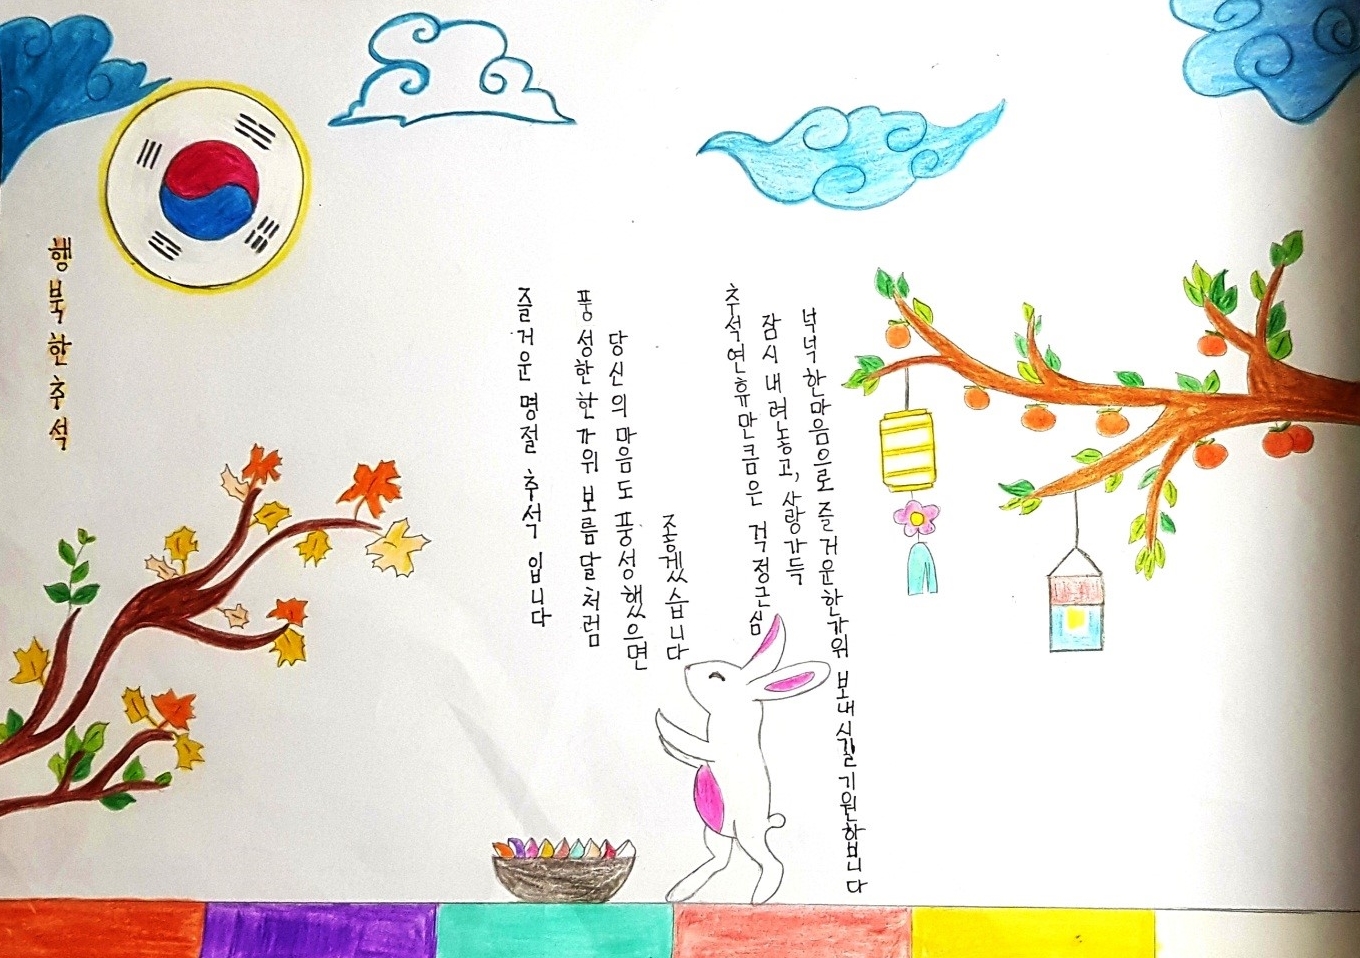 행북한추석
즐거운 명절 추석 입니다
풍성한한가위 보름달처럼
당신의마음도 풍성했으면
좋겠습니다
추석연휴만큼은 걱정근심
잠시내려놓고, 사랑가득
넉넉한마음으로 즐거운한가위 보내시길 기원합니다